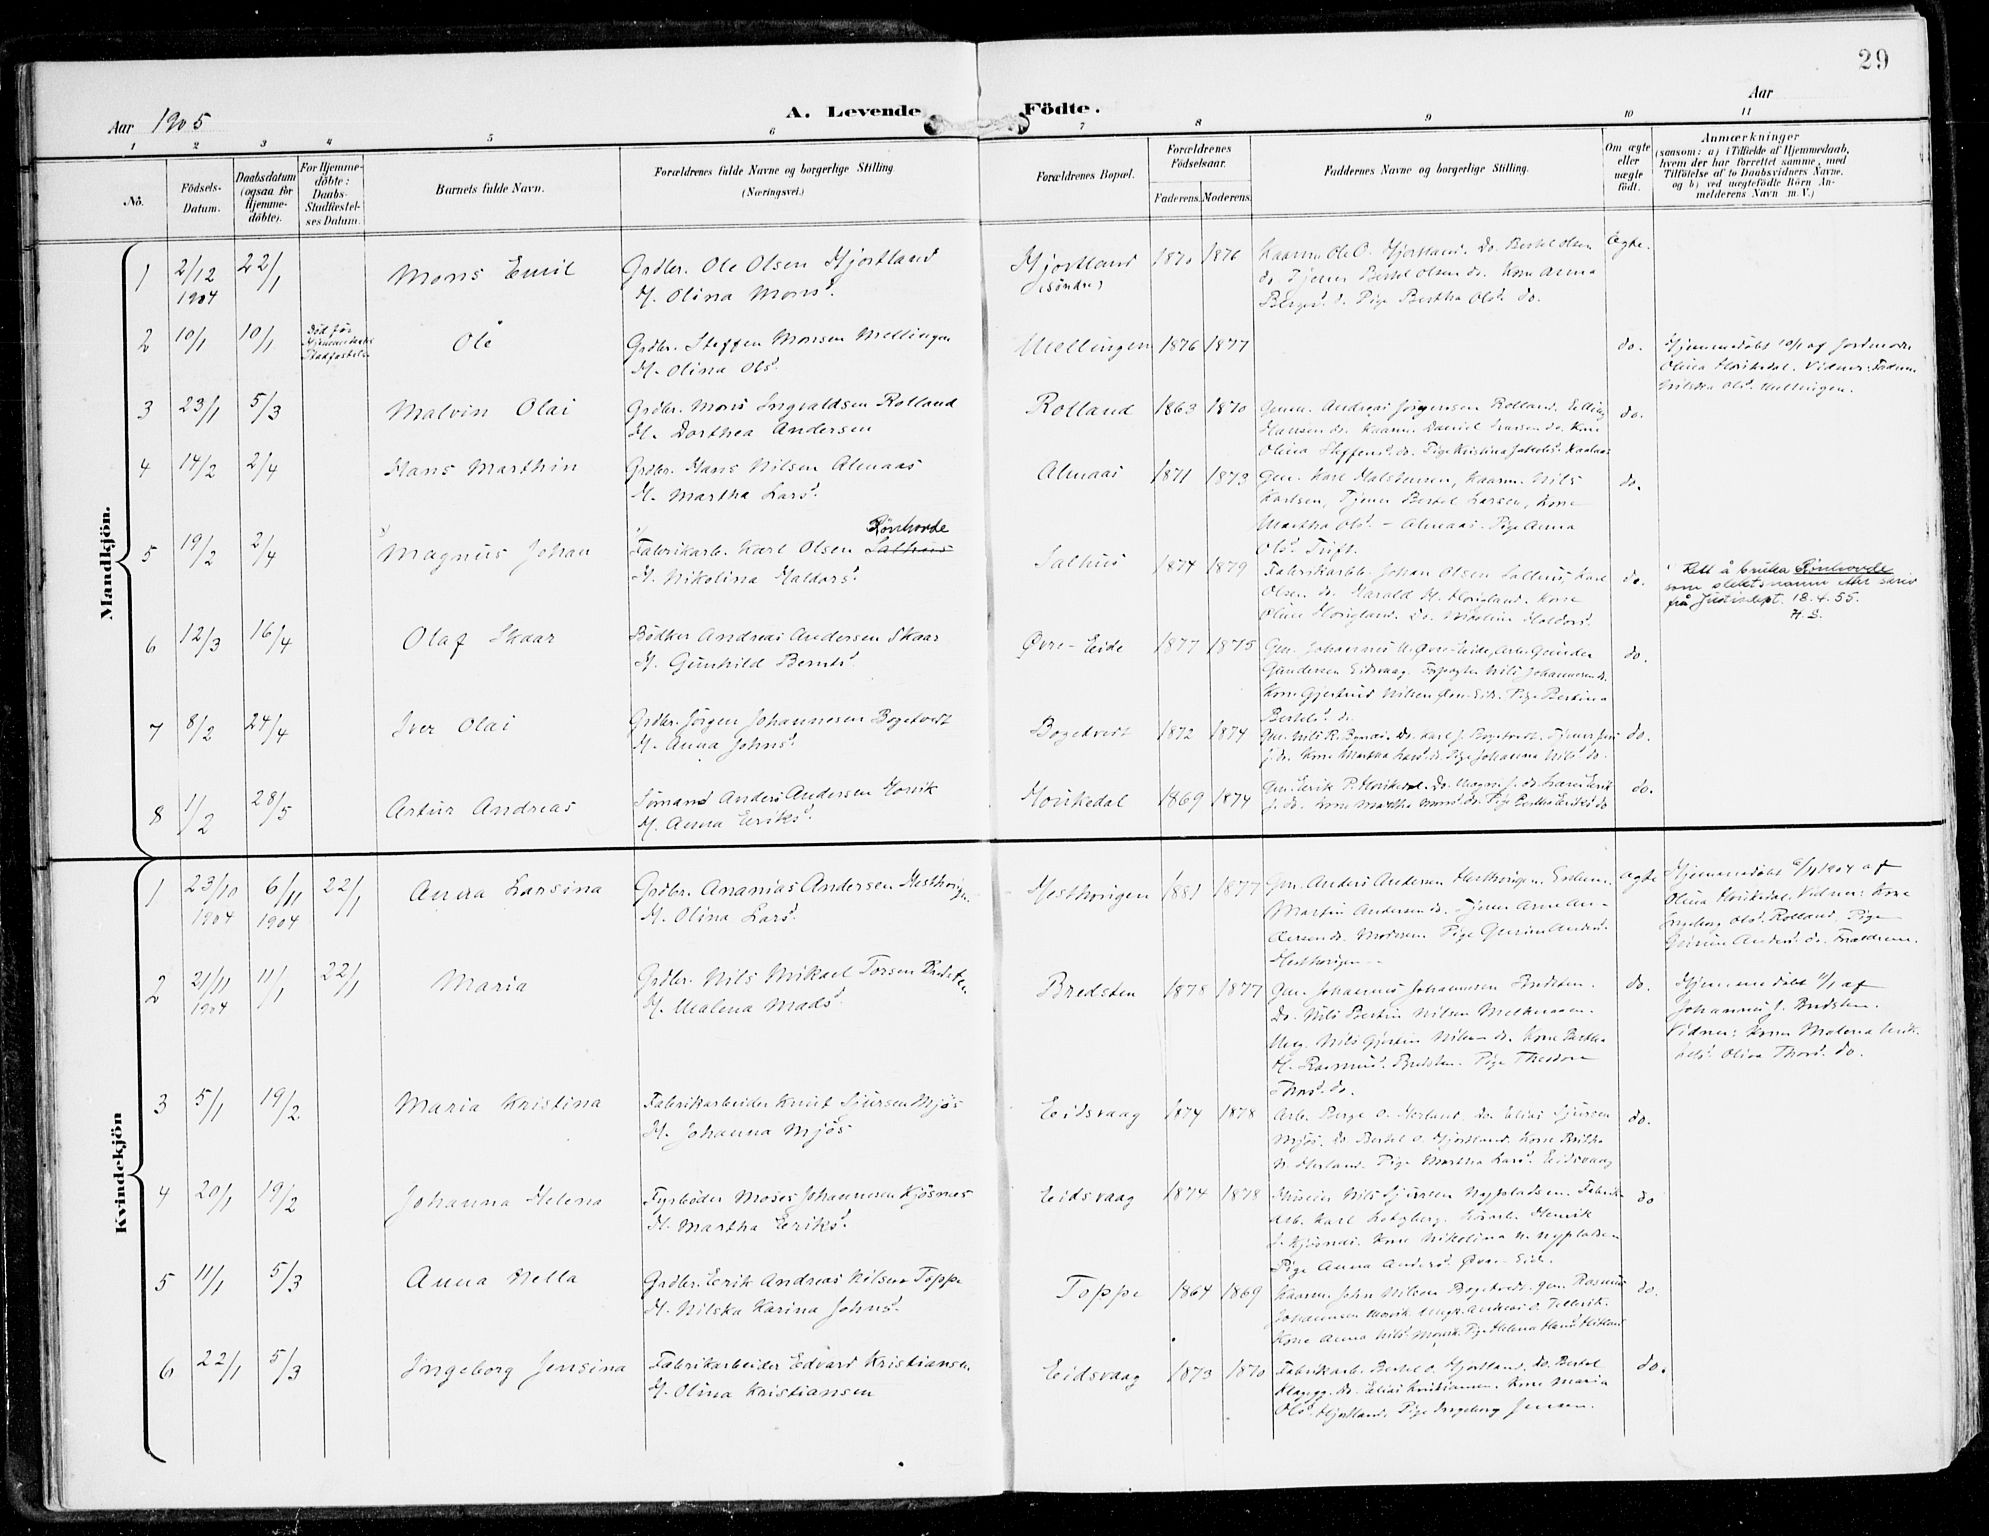 29
Aar 1905
A. Levende Födte.
Aar
1 2 3 4 5 6 7 8 9 10 11
No.
Födsels-Datum.
Daabsdatum (ogsaa for Hjemme-döbte).
For Hjemme-döbte: Daabs-Stadfæstel-ses Datum.
Barnets fulde Navn.
Forældrenes fulde Navne og borgerlige Stilling
(Næringsvei.)
Forældrenes Bopæl.
Forældrenes Födselsaar.
Faderens. Moderens.
Faddernes Navne og borgerlige Stilling.
Om ægte eller uægte födt.
Anmærkninger
(saasom: a) i Tilfælde af Hjemmedaab,
hvem der har forrettet samme, med
Tilföielse af to Daabsvidners Navne,
og b) ved uegtefödte Börn An-
melderens Navn m. V.)
Mandkjön.
1 2/12 1904 22/1 Mons Emil
Grdbr. Ole Olsen Hjortland
H. Olina Monsd.
Hjortland (söndre) 1870 1876
Kaarm. Ole O. Hjortland. Do. Bertel Olsen
do. Tjener Bertel Olsen do. Kone Anna
do. Pige Bertha Olsd. do.
Ægte.
2 10/1 10/1 Död før Hjemmedaabs Stadfæstelse Ole
Grdbr. Steffen Monsen Mellingen
H. Olina Olsd.
Mellingen 1876 1877
do.
Hjemmedöbt 10/1 af Jordmoder
Olina Hovikedal. Vidner:
Olsd. Mellingen.
3 23/1 5/3 Malvin Olai
Grdbr. Mons Ingvaldsen Rolland
H. Dorthea Andersen
Rolland 1863 1870
Gmm. Andreas Jörgensen Rolland. Elling
Hansen do. Kaarm. Daniel Larsen do. Kone
Olina Steffensd. do. Pige Kristina
do.
4 14/2 2/4 Hans Marthin
Grdbr. Hans Nilsen Almaas
H. Martha Larsd.
Almaas 1871 1873
Gm. Karl Halstensen, Kaarm. Nils
Karlsen, Tjener Bertel Larsen, Kone
Martha Olsd. - Almaas. Pige Anna
Olsd. Tuft.
do.
5 19/2 2/4 Magnus Johan
Rönhovde
Fabrikarb. Karl Olsen Salhus
H. Nikolina Haldorsd.
Salhus 1874 1879
Fabrikarb. Johan Olsen Salhus, Karl
Olsen do. Harald H. Hougland. Kone
Oline Hougland. Do. Nikoline Haldorsd.
do.
Rett å bruka Rönhovde
som slektsnamn etter skriv
frå Justisdept. 18.4.55.
H.S.
6 12/3 16/4 Olaf Skaar
Bödker Andreas Andersen Skaar
H. Gunhild Berntsd.
Øvre-Eide 1877 1875
Gm. Johannes N. Øvre-Eide, Arb. Gunder
Gundersen Eidsvaag. Nils Johannesen do.
Kone Gjertrud Nilsen Øvre-Eide. Pige Bertina
Bertelsd. do.
do.
7 8/2 24/4 Iver Olai
Grdbr. Jörgen Johannesen Bogetveit
H. Anna Johnsd.
Bogetveit 1872 1874
Gm. Nils R. Do. Karl J. Bogetveit. Tjener
J. do. Kone Martha Larsd. do. Pige Johanna Nilsd. do.
do.
8 1/2 28/5 Artur Andreas
Sömand Anders Andersen Hovik
H. Anna Eriksd.
Hovikedal 1869 1874
Gm. Erik P. Hovikedal. Do. Mons J. do.
J. do. Kone Martha Monsd. do. Pige Bertha Eriksd. do
do.
Kvindekjön
1 23/10 1904 6/11 1904 22/1 Anna Larsina
Grdbr. Ananias Andersen Hesthovigen
H. Olina Larsd.
Hesthovigen 1881 1877
Gm. Anders Andersen Hesthovigen.
Martin Andersen do. Tjener Arne An-
dersen do. Moderen. Pige Gurine Andersd.
Hesthovigen
ægte
Hjemmedöbt 6/11 1904 af
Olina Hovikedal. Vidner: Kone
Ingeborg Olsd. Rolland, Pige
Gurine Andersd. do. Forældrene.
2 21/11 1904 11/1 22/1 Maria
Grdbr. Nils Mikael Torsen Bredsten
H. Malena Madsd.
Bredsten 1878 1877
Gm. Johannes Johannesen Bredsten.
Do. Nils Bertin Nilsen
Ung. Nils Gjertin Nilsen do. Kone Bertha
H. Rasmusd. Bredsten. Pige Theodora
Thorsd. do.
do.
Hjemmedöbt 11/1 af
Johannes J. Bredsten.
Vidner: Kone Malena
Oliva Thorsd. do.
3 5/1 19/2 Maria Kristina
Fabrikarbeider Knut Sjursen Mjös
H. Johanna Mjös
Eidsvaag 1874 1878
Arb. Berge O. Herland, do. Elias Sjursen
Mjös. Do. Bertel O. Hjortland. Kone Brithe
N. Herland. Pige Martha Larsd. Eidsvaag
do.
4 20/1 19/2 Johanna Helena
Fyrböder Moses Johannesen Kjösnes
H. Martha Eriksd.
Eidsvaag 1874 1878
Nils Sjursen Nypladsen. Fabrik-
arb. Karl Henrik
J. Kjösnes. Kone Nikolina N. Nypladsen
Pige Anna Andersd. Øvre-Eide.
do
5 11/1 5/3 Anna Hella
Grdbr. Erik Andreas Nilsen Toppe
H. Nilska Karina Johnsd.
Toppe 1864 1869
Kaarm. John Nilsen Bogetveit. Gm. Rasmus
Johannesen Hovik. Ungk. Andreas O. Tellevik.
Kone Anna Nilsd. Hovik. Pige Helena Hansd.
do.
6 22/1 5/3 Ingeborg Jensina
Fabrikarbeider Edvard Kristiansen
H. Olina Kristiansen
Eidsvaag 1873 1870
Fabrikarb. Bertel O. Hjortland. do. Bertel
do. Elias Kristiansen. Kone Maria
Olsd. Hjortland. Pige Ingeborg Jensen.
do.